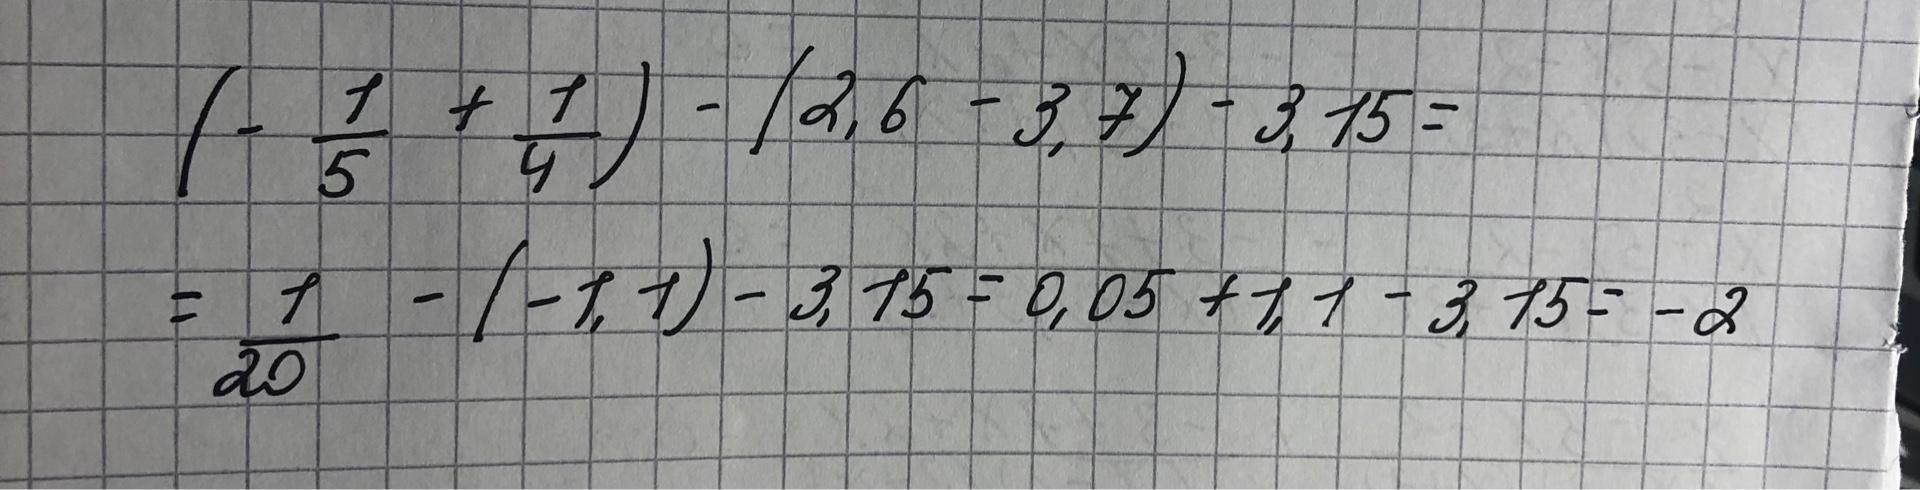 (- 1/5 + 1/4) - (2,6 - 3,7) - 3,15 =
= 1/20 - (-1,1) - 3,15 = 0,05 + 1,1 - 3,15 = -2